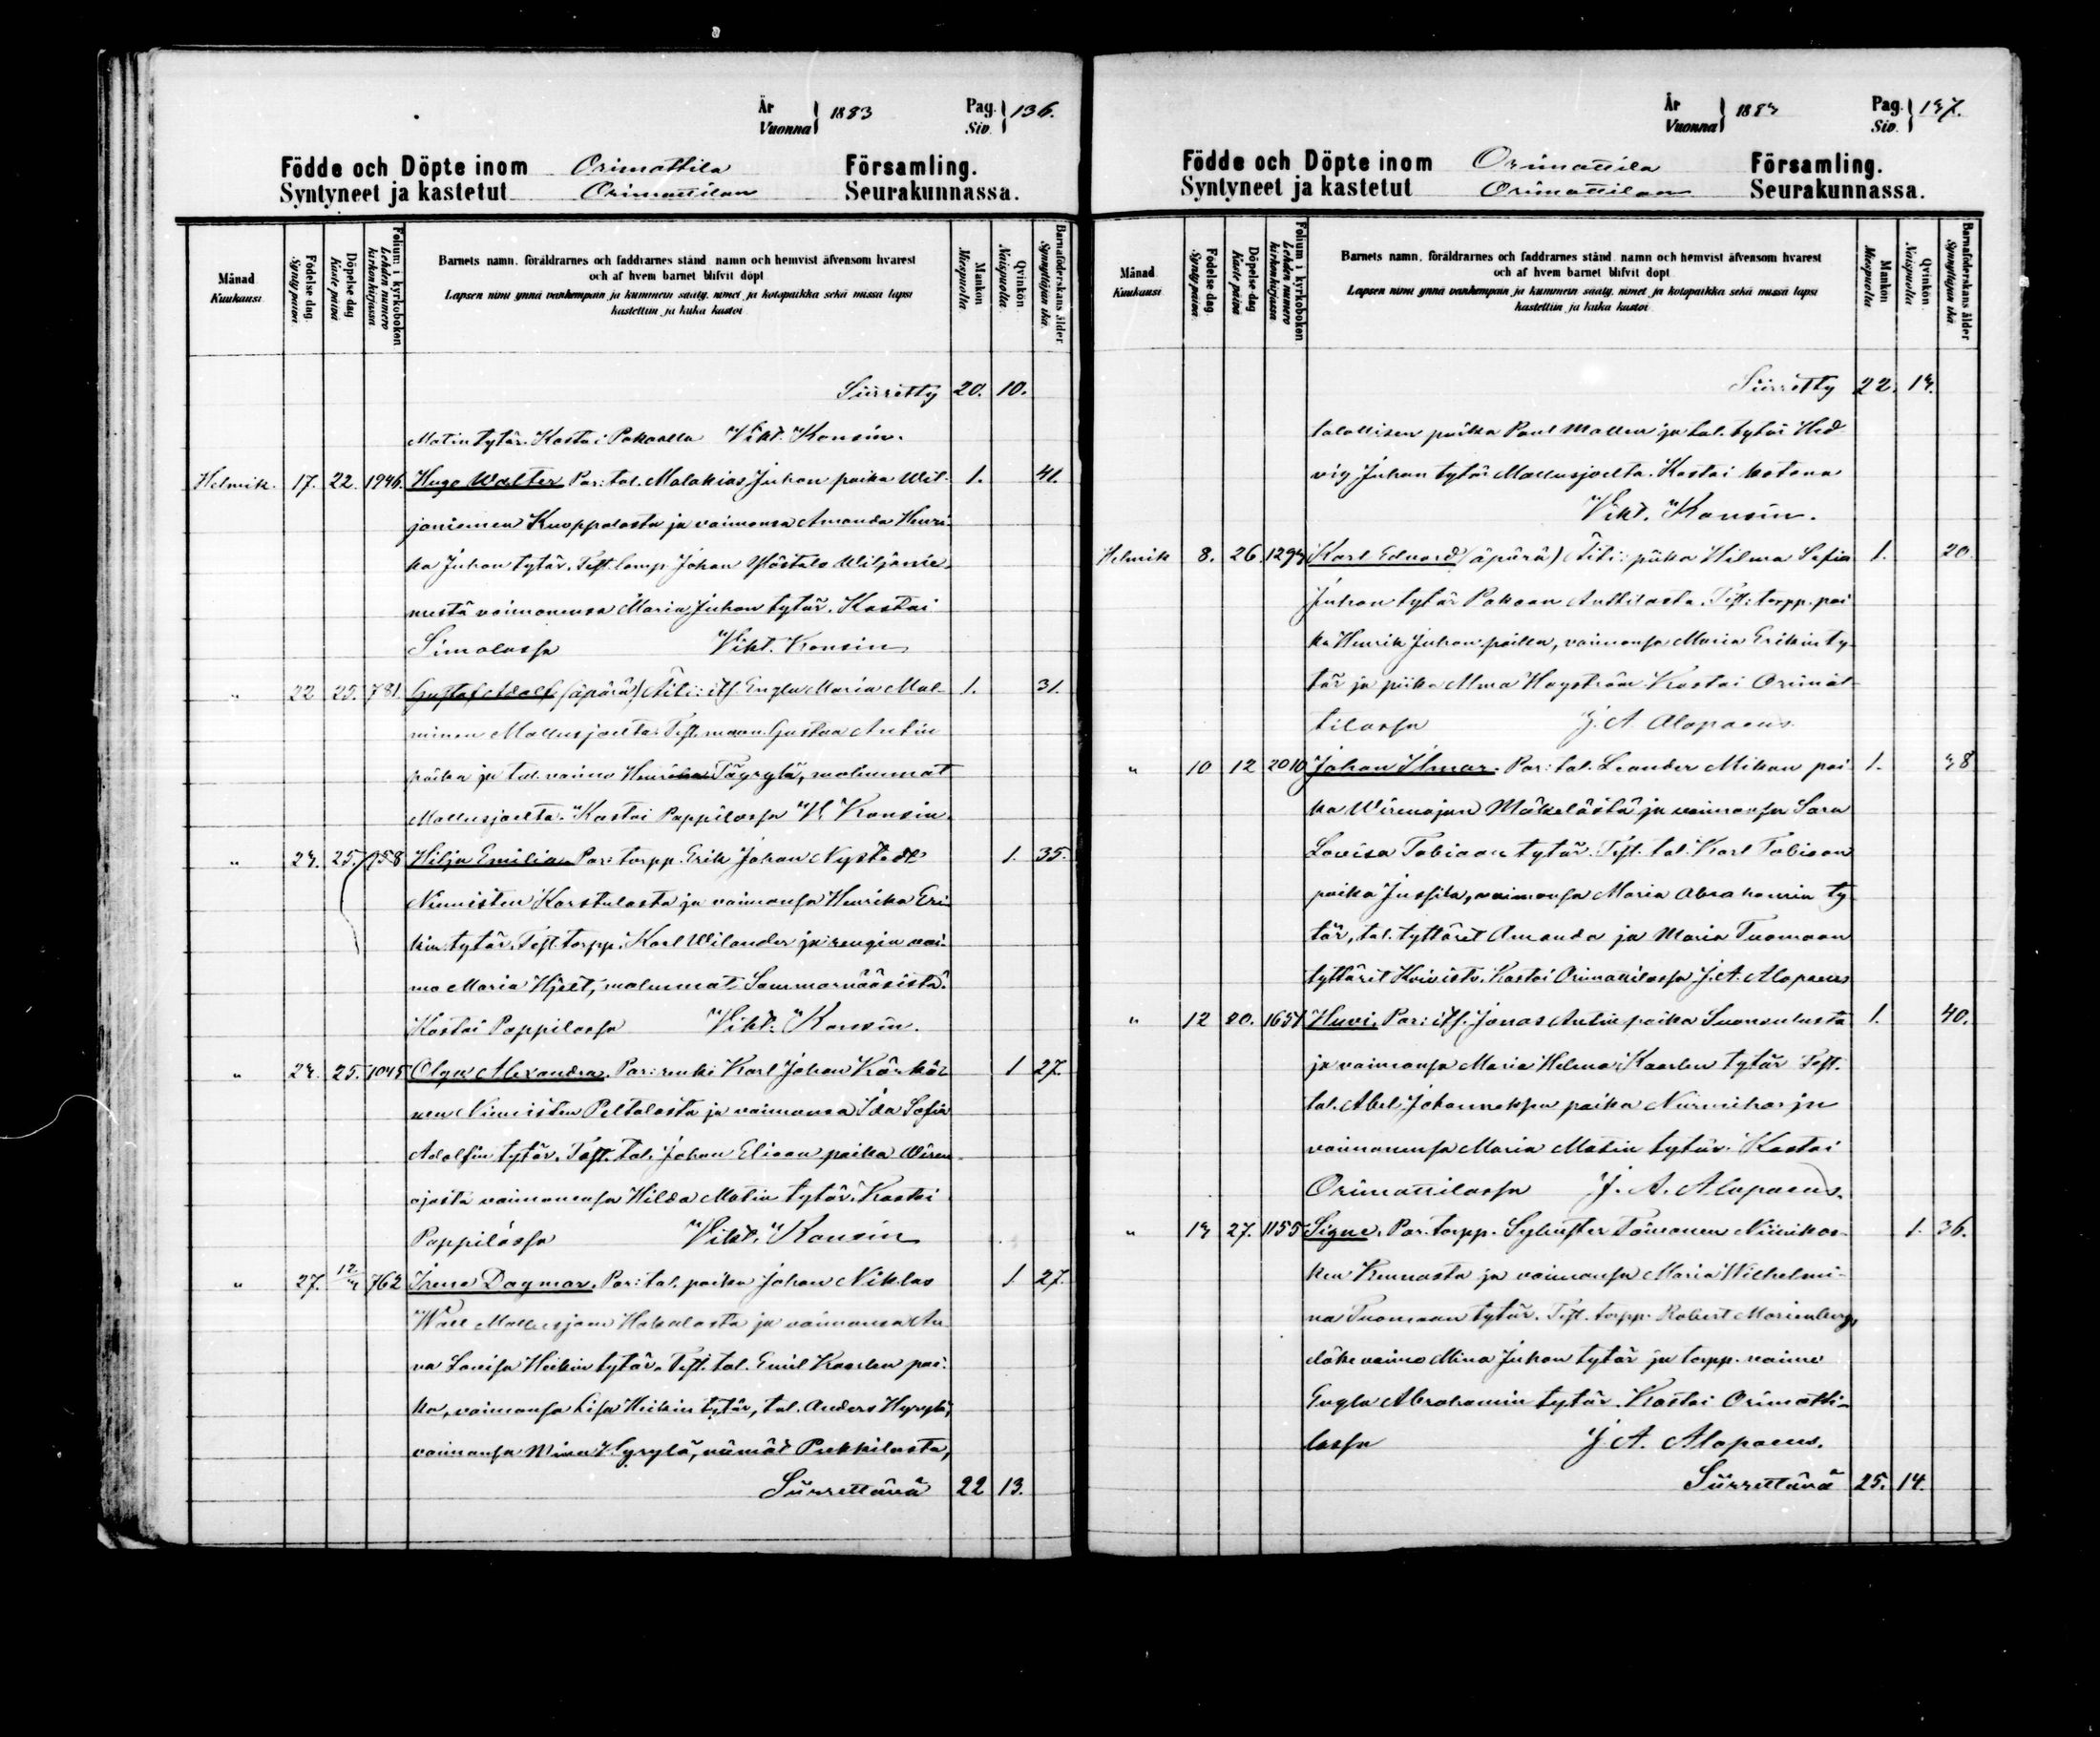 År Vuonna } 1883 Pag. Siv. } 136.
Födde och Döpte inom Orimattila Församling.
Syntyneet ja kastetut Orimattilan Seurakunnassa.
Månad Kuukausi
Födelse dag. Synty päivä
Döpelse dag Kaste päivä
Folium i kyrkoboken Lehden numero kirkonkirjassa
Barnets namn, föräldrarnes och faddrarnes stånd, namn och hemvist äfvensom hvarest
och af hvem barnet blifvit döpt
Lapsen nimi ynnä vanhempain ja kummein sääty, nimet ja kotopaikka sekä missä lapsi
kastettiin ja kuka kastoi
Mankön Miespuolta
Qvinkön. Naispuolta.
Barnaföderskans ålder Synnyttäjän ikä.
Siirretty 20. 10.
Matin tytär. Kastoi Pakaalla Vikt. Konsin.
Helmik. 17. 22. 1946. Hugo Walter Par: tal. Malakias Juhon poika Wil- 1. 41.
janiemen Knoppalasta ja vaimonsa Amanda Henri-
ka Juhon tytär. Test. lamp. Johan Yöstalo Wiljanie-
mestä vaimonensa Maria Juhon tytär. Kastoi
Simolassa Vikt. Konsin
" 22 25. 781. Gustaf Adolf (äpärä) Äiti: its. Engla Maria Mal- 1. 31.
minen Mallusjoelta. Test. maan. Gustaa Antin
poika ja tal. vaimo Henrika Täyrylä, molemmat
Mallusjoelta. Kastoi Pappilassa V. Konsin
" 24. 25. 758 Hilja Emilia Par: torpp. Erik Johan Nystedt 1. 35.
Niinisten Karstulasta ja vaimonsa Henrika Eri-
kin tytär. Test. torpp. Karl Wilander ja rengin vai-
mo Maria Hjelt, molemmat Sammarnääsistä.
Kastoi Pappilassa Vikt. Konsin.
" 24. 25. 1045 Olga Alexandra. Par: renki Karl Johan Kärkäi- 1 27.
nen Niinisten Peltolasta ja vaimonsa Ida Sofia
Adolfin tytär. Test. tal. Johan Eliaan poika Wiren-
ojasta vaimonensa Hilda Matin tytär. Kastoi
Pappilassa Vikt. Konsin
" 27. 12/4 762 Irene Dagmar. Par: tal. poika Johan Niklas 1 27.
Wall Mallusjoen Hakalasta ja vaimonsa An
na Lovisa Heikin tytär. Test. tal. Emil Kaarlen poi-
ka, vaimonsa Lisa Heikin tytär, tal. Anders Hyrylä,
vaimonsa Mina Hyrylä, nämät Pekkilasta,
Siirrettävä 22 13.
År Vuonna } 1884 Pag. Siv. } 137.
Födde och Döpte inom Orimattila Församling.
Syntyneet ja kastetut Orimattilan Seurakunnassa.
Månad Kuukausi
Födelse dag. Synty päivä.
Döpelse dag Kaste päivä
Folium i kyrkoboken Lehden numero kirkonkirjassa
Barnets namn, föräldrarnes och faddrarnes stånd, namn och hemvist äfvensom hvarest
och af hvem barnet blifvit döpt
Lapsen nimi ynnä vanhempain ja kummein sääty, nimet ja kotopaikka sekä missä lapsi
kastettiin ja kuka kastoi
Mankön Miespuolta
Qvinkön. Naispuolta
Barnaföderskans ålder Synnyttäjän ikä
Siirretty 22. 14.
talollisen poika Paul Mallen ja tal. tytär Hed
vig Juhon tytär Mallusjoelta. Kastoi kotona
Vikt. Konsin.
Helmik 8. 26. 1294 Karl Eduard (äpärä) Äiti: piika Hilma Sofia 1. 20.
Juhon tytär Pakaan Anttilasta. Test: torpp. poi
ka Henrik Juhon poika, vaimonsa Maria Erikin ty-
tär ja piika Alma Hagström Kastoi Orimat-
tilassa J. A Alopaeus.
" 10 12 2010 Johan Ilmar. Par: tal. Leander Mikon poi 1. 48
ka Wirenojan Mäkelästä ja vaimonsa Sara
Lovisa Tobiaan tytär. Test. tal. Karl Tobiaan
poika Jussila, vaimonsa Maria Abrahamin ty
tär, tal. tyttäret Amanda ja Maria Tuomaan
tyttärit Koivisto. Kastoi Orimattilassa J. A. Alopaeus
" 12 20. 1654 Huvi. Par: its. Jonas Antin poika Suonsulasta 1. 40.
ja vaimonsa Maria Helena Kaarlen tytär Test.
tal. Abel Johanneksen poika Nurmihar ja
vaimonensa Maria Matin tytär. Kastoi
Orimattilassa J. A. Alopaeus.
" 14 27. 1155 Signe. Par. torpp. Sylvester Toivonen Niinikos- 1. 36.
ken Kunnasta ja vaimonsa Maria Wilhelmi-
na Tuomaan tytär. Test. torpp. Robert Marienberg,
eläkevaimo Mina Juhon tytär ja torpp. vaimo
Engla Abrahamin tytär. Kastoi Orimatti-
lassa J. A. Alopaeus.
Siirrettävä 25. 14.